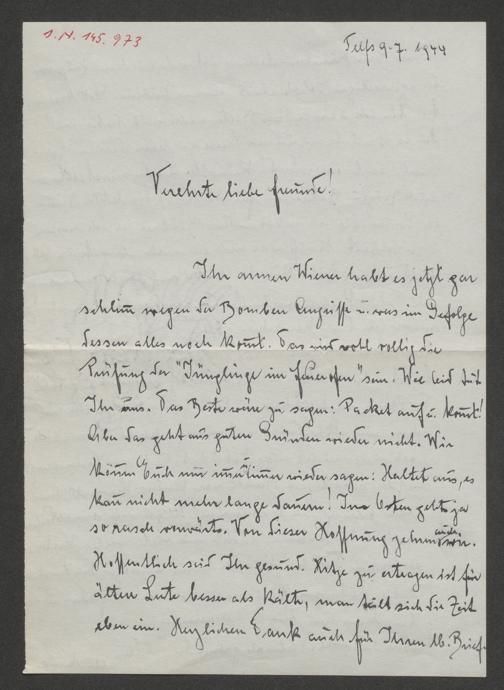 I.N. 145.973
Telfs 9.7. 1944
Verehrte liebe Freunde!
Ihr armen Wiener habt es jetzt gar
schlim wegen der Bomben Angriffe u. was im Gefolge
dessen alles noch komt. Das wird wohl völlig die
Prüfung der "Jünglinge im Feuerofen" sein. Wie leid tut
Ihr uns. Das Beste wäre zu sagen: Packet auf u. komt!
Aber das geht aus guten Gründen wieder nicht. Wir
könen Euch nur imer wieder sagen: Haltet aus, es
kan nicht mehr lange dauern! Im Osten gehts ja
so rasch vorwärts. Von dieser Hoffnung zehren auch wir.
Hoffentlich seid Ihr gesund. Hitze zu ertragen ist für
ältere Leute besser als Kälte, man teilt sich die Zeit
eben ein. Herzlichen Dank auch für Ihren lb. Brief.